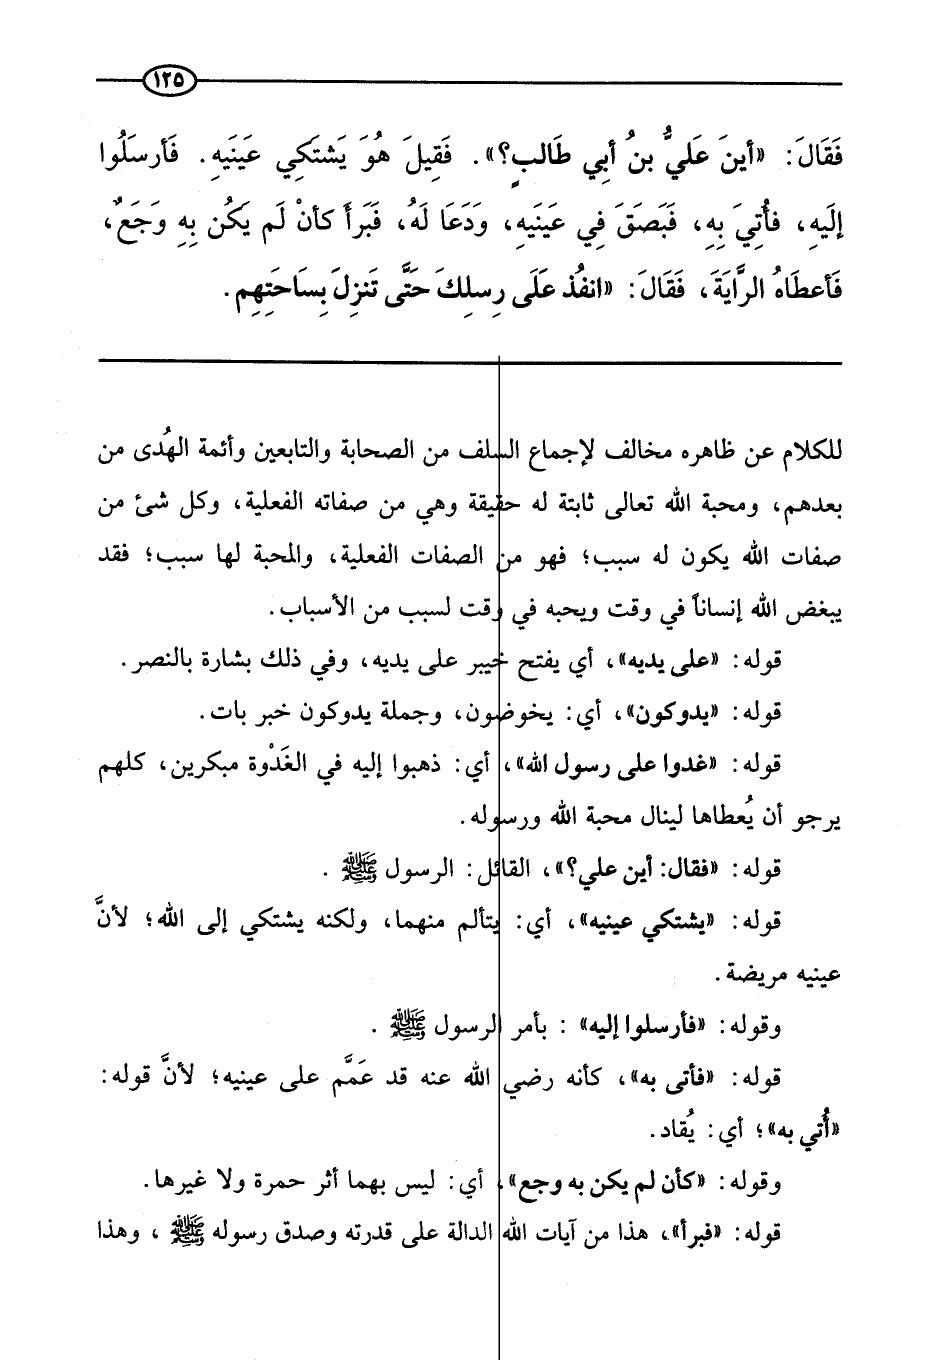 ١٢٥
فَقَالَ: «أينَ عَلَيُّ بنُ أبِي طَالبٍ؟». فَقِيلَ هُوَ يَشتَكِي عَينَيهِ. فَأرسَلُوا
إلَيهِ، فأُتِيَ بِهِ، فَبَصَقَ فِي عَينَيهِ، وَدَعَا لَهُ، فَبَرَأَ كأنْ لَم يَكُن بِهِ وَجَعٌ،
فَأعطَاهُ الرَّايَةَ، فَقَالَ: «انفُذ عَلَى رِسلِكَ حَتَّى تَنزِلَ بِسَاحَتِهِم.
للكلام عن ظاهره مخالف لإجماع السلف من الصحابة والتابعين وأئمة الهُدى من
بعدهم، ومحبة الله تعالى ثابتة له حقيقة وهي من صفاته الفعلية، وكل شئ من
صفات الله يكون له سبب؛ فهو من الصفات الفعلية، والمحبة لها سبب؛ فقد
يبغض الله إنساناً في وقت ويحبه في وقت لسبب من الأسباب.
قوله: «على يديه»، أي يفتح خيبر على يديه، وفي ذلك بشارة بالنصر.
قوله: «يدوكون»، أي: يخوضون، وجملة يدوكون خبر بات.
قوله: «غدوا على رسول الله»، أي: ذهبوا إليه في الغَدْوة مبكرين، كلهم
يرجو أن يُعطاها لينال محبة الله ورسوله.
قوله: «فقال: أين علي؟»، القائل: الرسول ﷺ .
قوله: «يشتكي عينيه»، أي: يتألم منهما، ولكنه يشتكي إلى الله؛ لأنَّ
عينيه مريضة.
وقوله: «فأرسلوا إليه» : بأمر الرسول ﷺ .
قوله: «فأتى به»، كأنه رضي الله عنه قد عَمَّم على عينيه؛ لأنَّ قوله:
«أُتي به»؛ أي: يُقاد.
وقوله: «كأن لم يكن به وجع»، أي: ليس بهما أثر حمرة ولا غيرها.
قوله: «فبرأ»، هذا من آيات الله الدالة على قدرته وصدق رسوله ﷺ ، وهذا